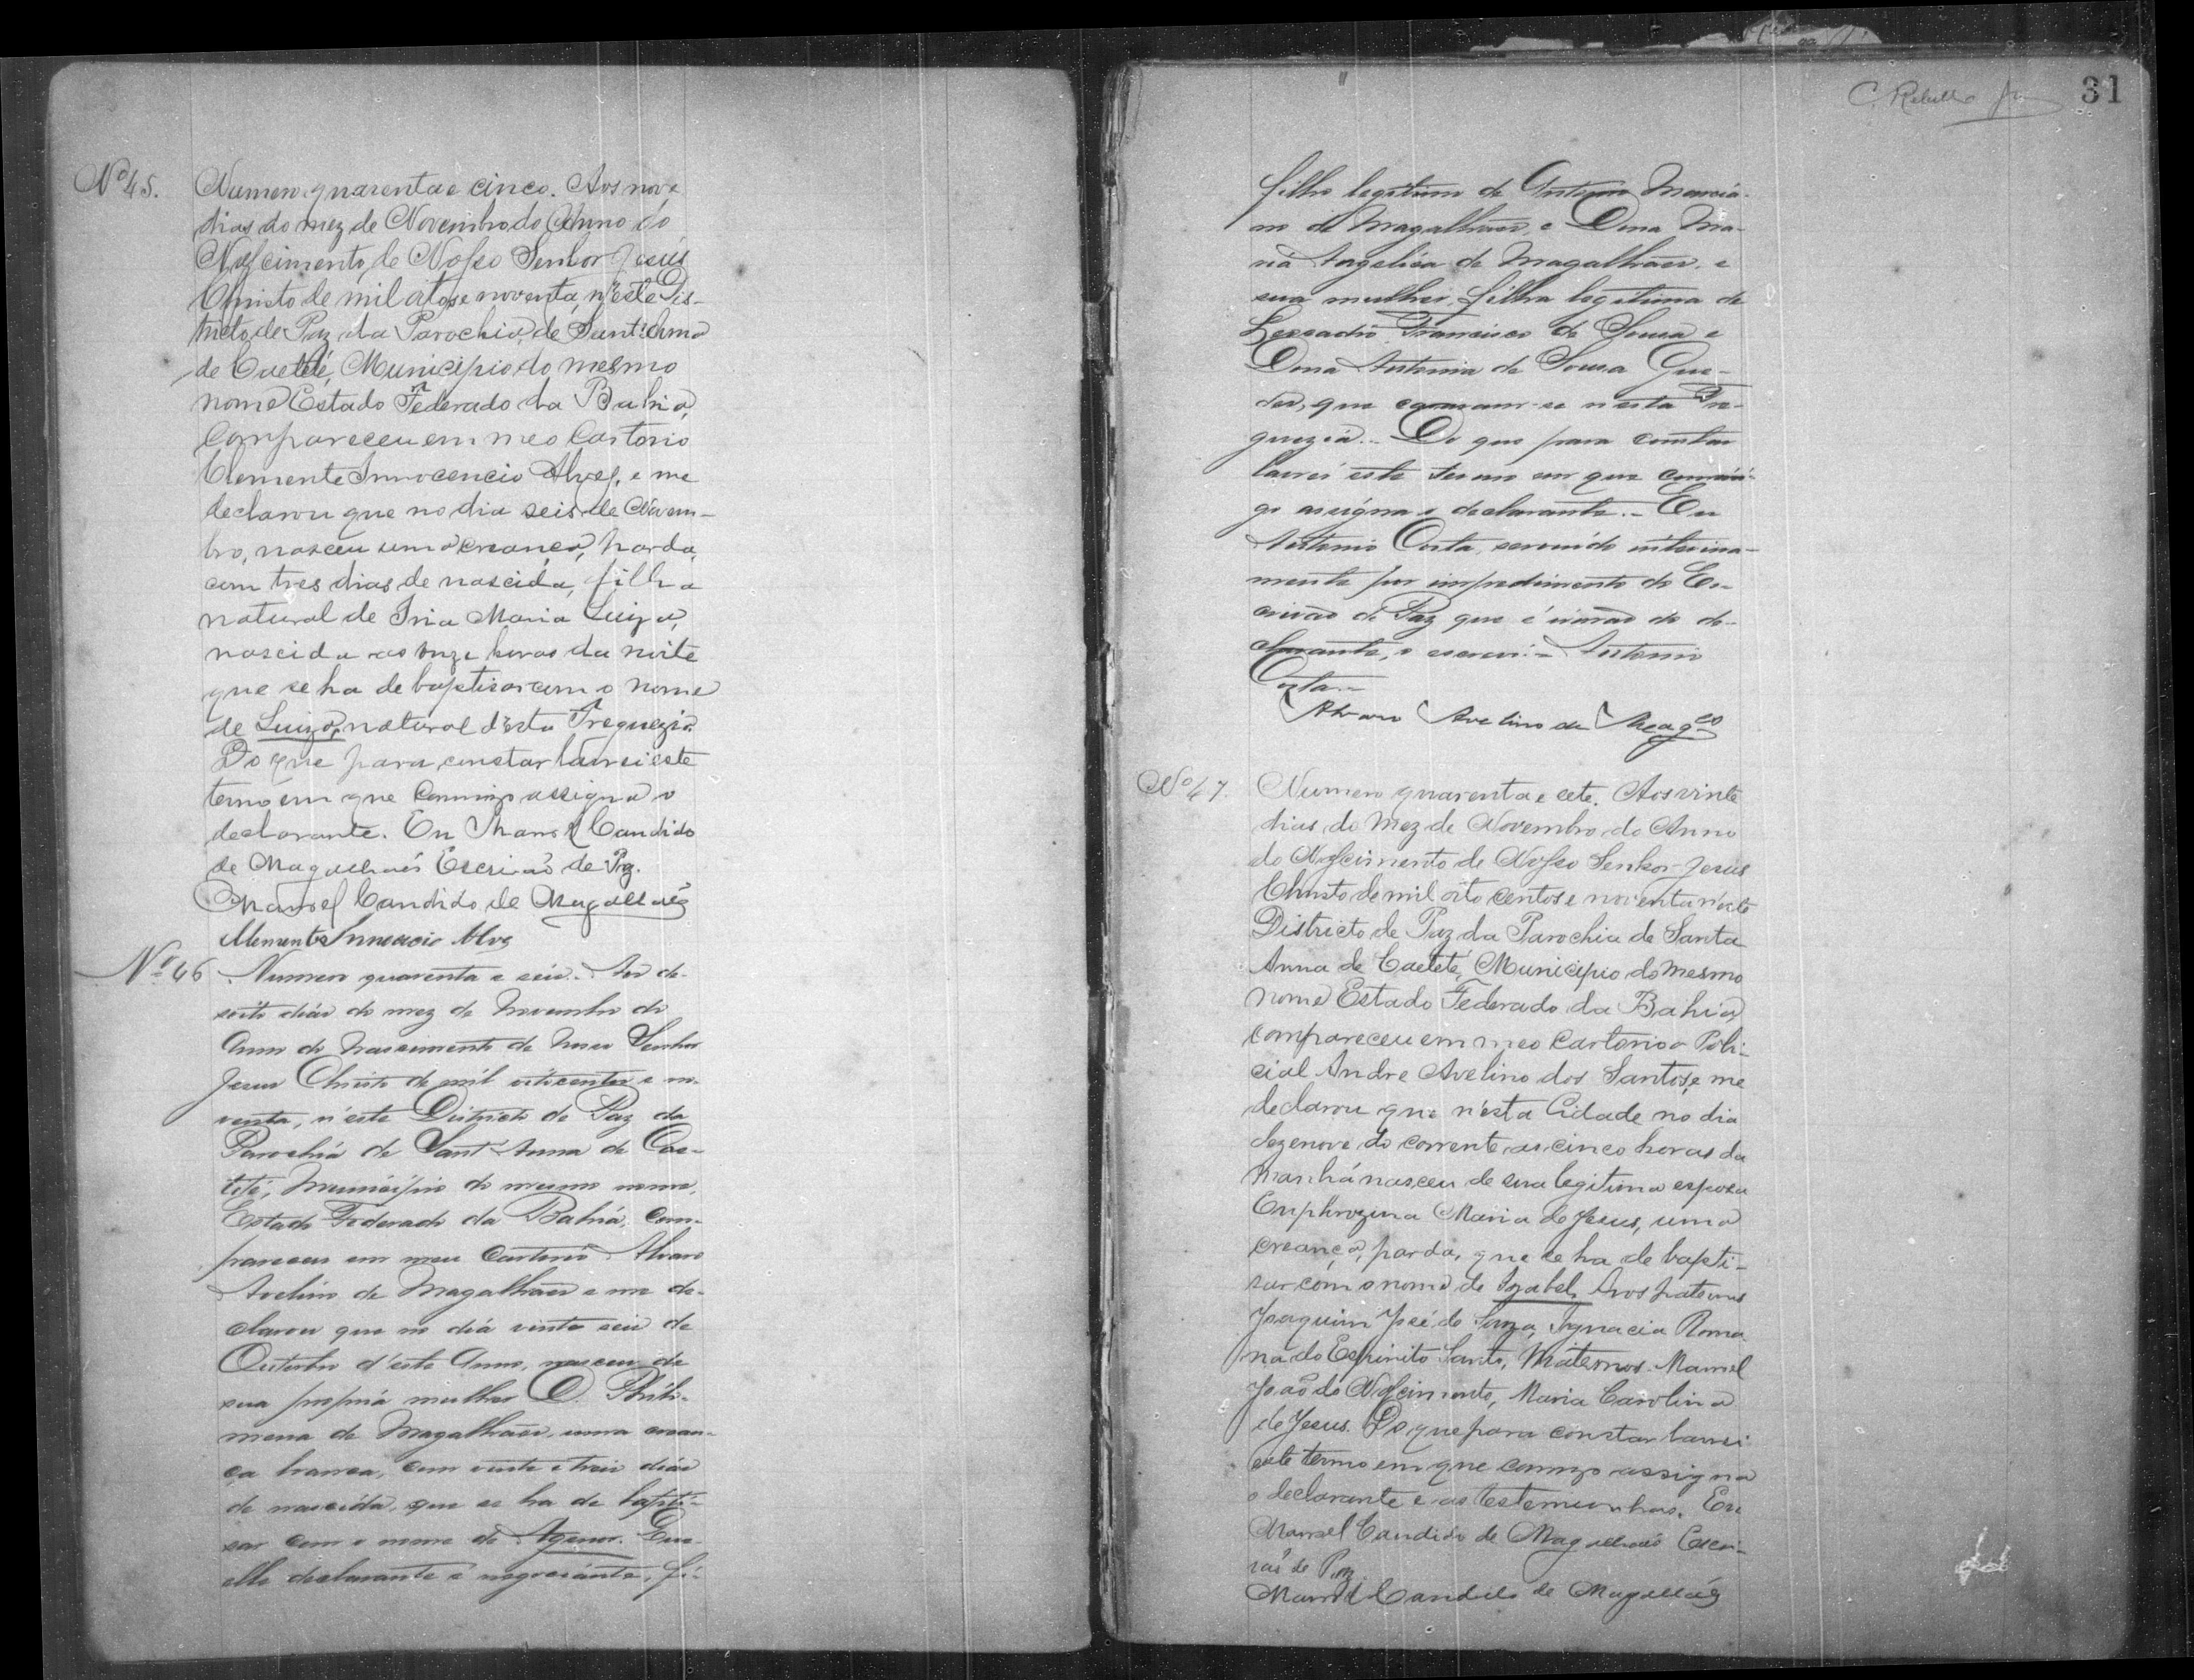 Nº 45.
Numero quarenta e cinco. Aos nove
dias do mez de Novembro do Anno do
Nascimento de Nosso Senhor Jesús
Christo de mil oitos e noventa, n'este Dis-
tricto de Paz da Parochia de Sant'Anna
de Caeteté, Municipio do mesmo
nome Estado Federado da Bahia,
Compareceu em meo Cartorio
Clemente Innocencio Alves, e me
declarou que no dia seis de Novem-
bro, nasceu uma creança, parda,
com tres dias de nascida, filha
natural de Iria Maria Luiza,
nascida as onze horas da noite
que se ha de baptisar com o nome
de Luiza, natural d'esta Freguezia.
Do que para constar lavrei este
termo em que commigo assigna o
declarante. Eu Manoel Candido
de Magalhães Escrivão de Paz.
Manoel Candido de Magalhães
Clemente Innocencio Alves
Nº 46
Numero quarenta e seis. Aos de-
soito dias do mez de Novembro do
Anno do Nascimento de Nosso Senhor
Jesus Christo de mil oitocentos e no-
venta, n'este Districto de Paz da
Parochia de Sant'Anna de Cae-
teté, Municipio do mesmo nome,
Estado Federado da Bahia, com-
pareceu em meu Cartorio Alvaro
Avelino de Magalhães e me de-
clarou que no dia vinte seis de
Outubro d'este Anno, nasceu de
sua propria mulher D. Philo-
mena de Magalhães, uma crean-
ça branca, com vinte e tres dias
de nascida, que se ha de bapti-
sar com o nome de Agenor. Que
elle declarante é negociante, fi-
C. Rebello Jr
31
filho legitimo de Antonio Marcia-
no de Magalhães, e Dona Ma-
ria Angelica de Magalhães, e
sua mulher, filha legitima de
Leocadio Francisco de Sousa e
Dona Antonia de Sousa Gue-
des, que casaram-se nesta Fre-
guezia. - Do que para constar
lavrei este termo em que commi-
go assigna o declarante. - Eu
Antonio Costa, servindo interina-
mente por impedimento do Es-
crivão de Paz que é irmão do de-
clarante, o escrevi. - Antonio
Costa. -
Alvaro Avelino de Mag.es
Nº 47.
Numero quarenta e sete. Aos vinte
dias do Mez de Novembro do Anno
do Nascimento de Nosso Senhor Jesús
Christo de mil oito centos e noventa n'este
Districto de Paz da Parochia de Santa
Anna de Caeteté, Municipio do mesmo
nome Estado Federado da Bahia,
compareceu em meo Cartorio o Poli-
cial Andre Avelino dos Santos, e me
declarou que n'esta Cidade no dia
dezenove do corrente, as cinco horas da
manhã nasceu de sua legitima esposa
Euphrozina Maria de Jesus, uma
creança, parda, que se ha de bapti-
sar com o nome de Izabel, Avos paternos
Joaquim José de Souza, Ignacia Roma
na do Espirito Santo, Maternos Manoel
João do Nascimento, Maria Carolina
de Jesus. Do que para constar lavrei
este termo em que comigo assigna
o declarante e as testemunhas. Eu
Manoel Candido de Magalhães Escri-
vão de Paz
Manoel Candido de Magalhães